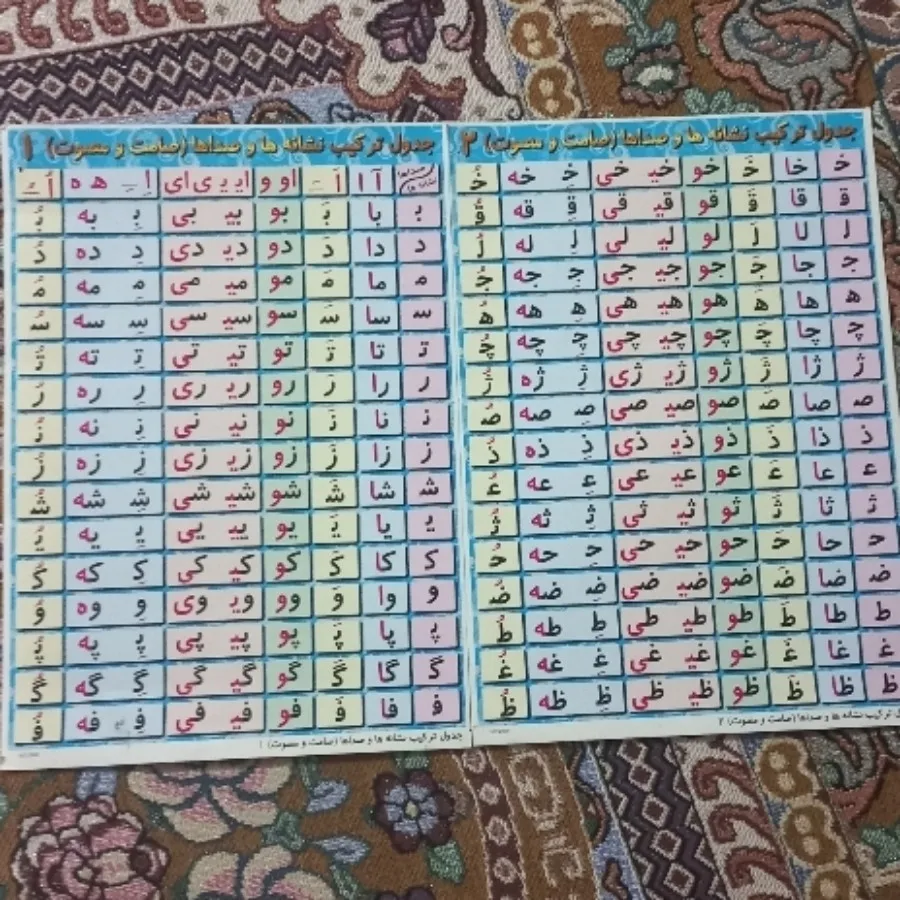 جدول ترکیب نشانه ها و صداها (صامت و مصوت) ۱
صداها نشانه ها آ ا اَ ـَ او و ایـ یـ ی ای اِ ـِ ـه ه اُ ـُ
بـ با بَـ بو بیـ بی بِـ به بُـ
د دا دَ دو دیـ دی دِ ده دُ
مـ ما مَـ مو میـ می مِـ مه مُـ
سـ سا سَـ سو سیـ سی سِـ سه سُـ
تـ تا تَـ تو تیـ تی تِـ ته تُـ
ر را رَ رو ریـ ری رِ ره رُ
نـ نا نَـ نو نیـ نی نِـ نه نُـ
ز زا زَ زو زیـ زی زِ زه زُ
شـ شا شَـ شو شیـ شی شِـ شه شُـ
یـ یا یَـ یو ییـ یی یِـ یه یُـ
کـ کا کَـ کو کیـ کی کِـ که کُـ
و وا وَ وو ویـ وی وِ وه وُ
پـ پا پَـ پو پیـ پی پِـ په پُـ
گـ گا گَـ گو گیـ گی گِـ گه گُـ
فـ فا فَـ فو فیـ فی فِـ فه فُـ
جدول ترکیب نشانه ها و صداها (صامت و مصوت) ۱
جدول ترکیب نشانه ها و صداها (صامت و مصوت) ۲
خـ خا خَـ خو خیـ خی خِـ خه خُـ
قـ قا قَـ قو قیـ قی قِـ قه قُـ
لـ لا لَـ لو لیـ لی لِـ له لُـ
جـ جا جَـ جو جیـ جی جِـ جه جُـ
هـ ها هَـ هو هیـ هی هِـ هه هُـ
چـ چا چَـ چو چیـ چی چِـ چه چُـ
ژ ژا ژَ ژو ژیـ ژی ژِ ژه ژُ
صـ صا صَـ صو صیـ صی صِـ صه صُـ
ذ ذا ذَ ذو ذیـ ذی ذِ ذه ذُ
عـ عا عَـ عو عیـ عی عِـ عه عُـ
ثـ ثا ثَـ ثو ثیـ ثی ثِـ ثه ثُـ
حـ حا حَـ حو حیـ حی حِـ حه حُـ
ضـ ضا ضَـ ضو ضیـ ضی ضِـ ضه ضُـ
ط طا طَ طو طیـ طی طِ طه طُ
غـ غا غَـ غو غیـ غی غِـ غه غُـ
ظ ظا ظَ ظو ظیـ ظی ظِ ظه ظُ
جدول ترکیب نشانه ها و صداها (صامت و مصوت) ۲